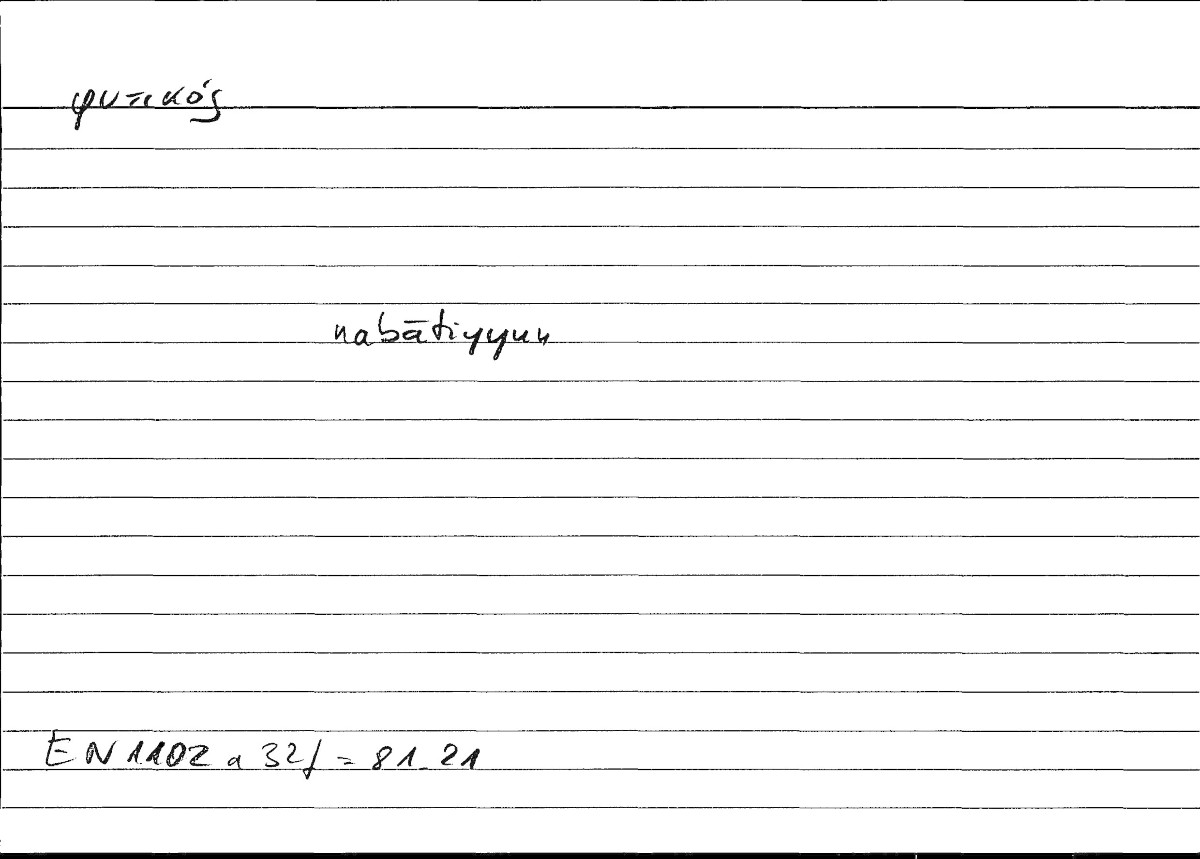 φυτικός
nabātiyyun
EN 1102 a 32f = 81.21